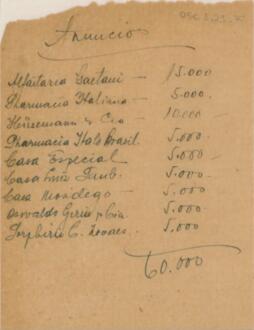 Anuncios
Alfaitaria Gaetani — 15.000
Pharmacia Italiana — 5.000
& Cia — 10.000
Pharmacia Italo Brasil. 5.000
Casa Especial — 5.000
Casa Luiz 5.000
Casa Mondego — 5.000
Osvaldo & Cia. 5.000
C. Novaes. 5.000
60.000